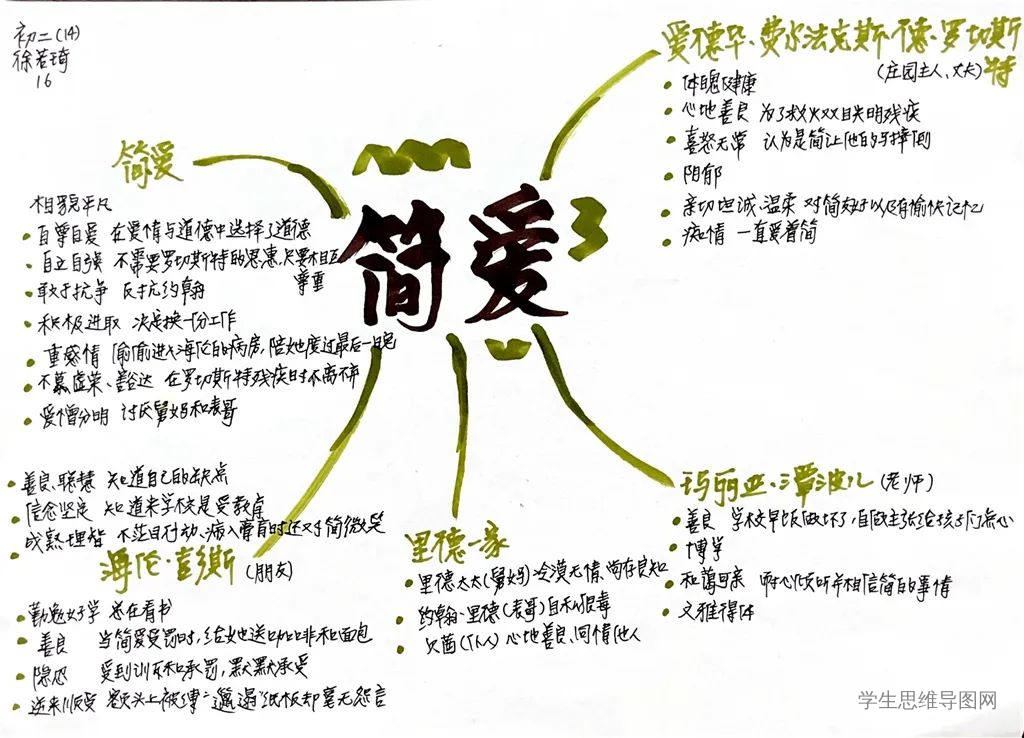 初二(14)
徐若琦
16
简爱
简爱
相貌平凡
自尊自爱 在爱情与道德中选择了道德
自立自强 不需要罗切斯特的恩惠,只要相互
尊重
敢于抗争 反抗约翰
积极进取 决定换一份工作
重感情 偷偷进入海伦的病房,陪她度过最后一晚
不慕虚荣、豁达 在罗切斯特残疾时不离不弃
爱憎分明 讨厌舅妈和表哥
爱德华·费尔法克斯·德·罗切斯
特
(庄园主人、丈夫)
体魄健康
心地善良 为了救火双目失明残疾
喜怒无常 认为是简让他的马摔倒
阴郁
亲切坦诚、温柔 对简友好以及有愉快记忆
痴情 一直爱着简
善良、聪慧 知道自己的缺点
信念坚定 知道来学校是受教育
成熟理智 不茫目行动、病入膏肓时还对简微笑
海伦·彭斯(朋友)
勤勉好学 总在看书
善良 当简爱受罚时,给她送咖啡和面包
隐忍 受到训斥和承罚,默默承受
逆来顺受 额头上被缚“邋遢”纸板却毫无怨言
里德一家
里德太太(舅妈)冷漠无情、尚存良知
约翰·里德(表哥)自私狠毒
(下人)心地善良、同情他人
玛丽亚·潭波儿(老师)
善良 学校早饭做坏了,自做主张给孩子们点心
博学
和蔼可亲 耐心倾听并相信简的事情
文雅得体
学生思维导图网